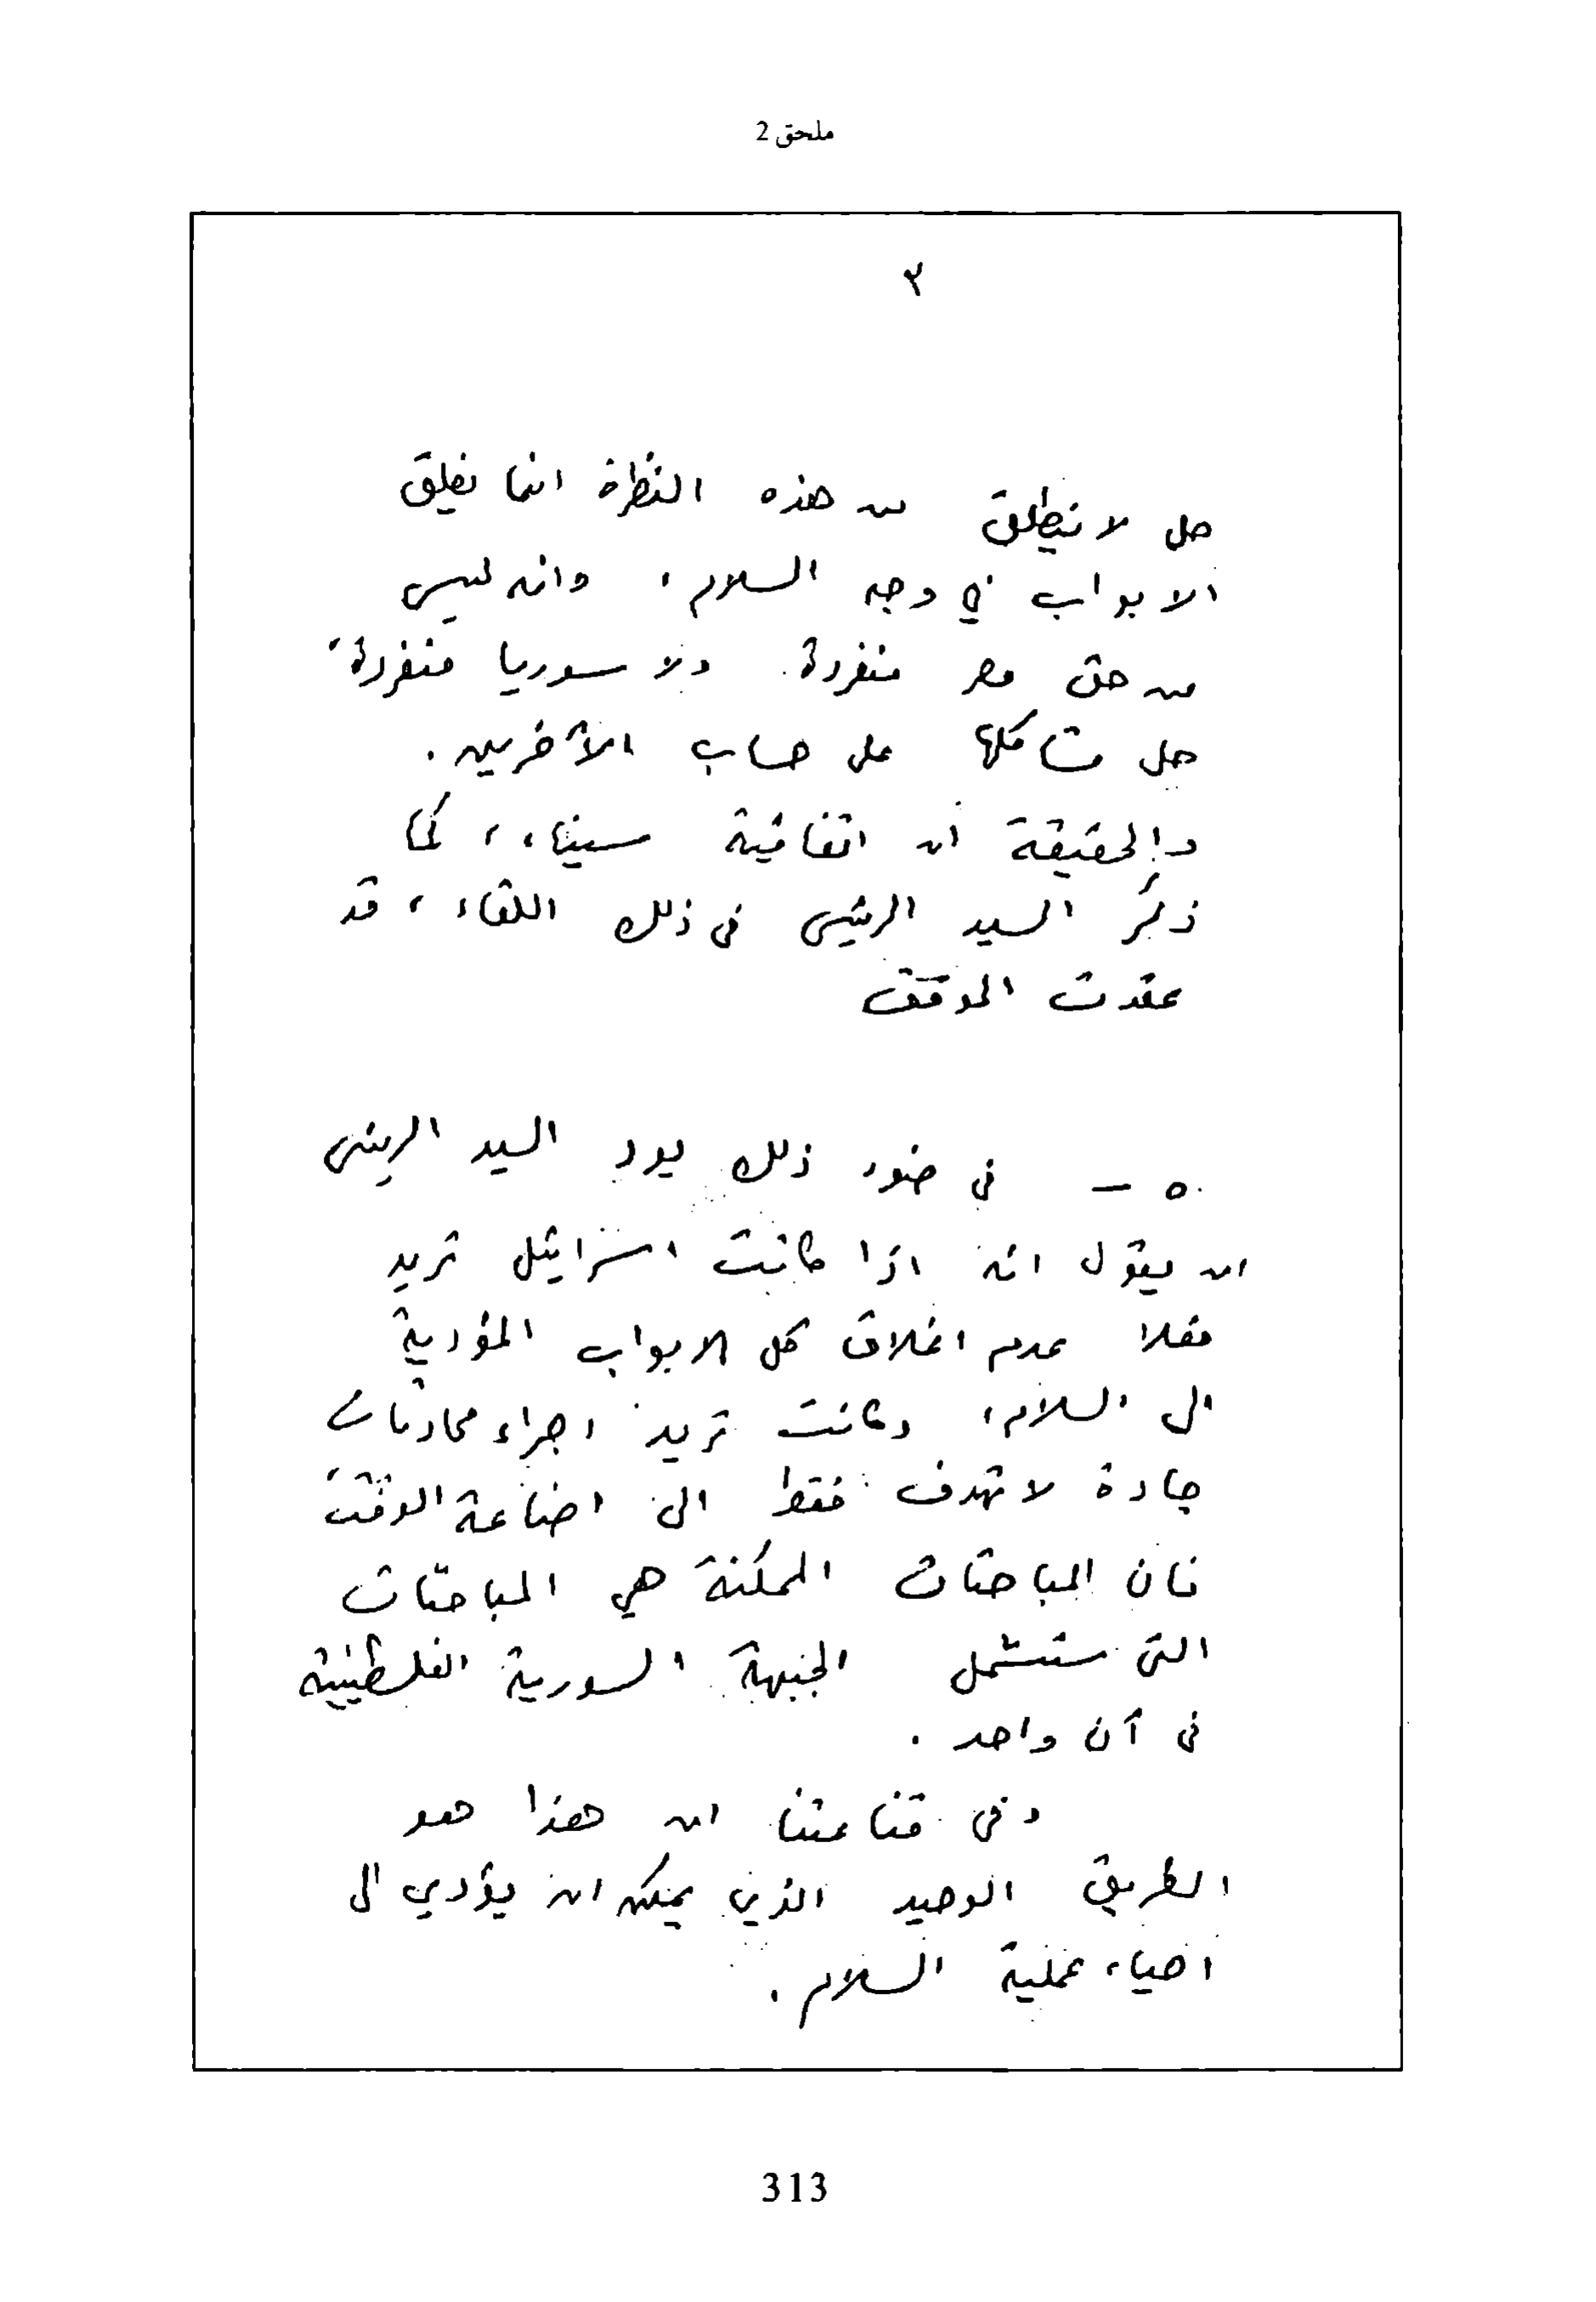 ملحق 2
٢
حل لا ينطلق من هذه النظرة انما نغلق
الابواب في وجه السلام، وانه ليس
من حق مصر منفردة ولا سوريا منفردة،
حل مشاكلها على حساب الآخرين.
والحقيقة ان اتفاقية سيناء، كما
ذكر السيد الرئيس في ذلك اللقاء، قد
عقدت الموقف
٥ - في ضوء ذلك يود السيد الرئيس
ان يقول انه اذا كانت اسرائيل تريد
فعلا عدم اغلاق كل الابواب المؤدية
الى السلام، وكانت تريد اجراء محادثات
جادة لا تهدف فقط الى اضاعة الوقت،
فان المباحثات الممكنة هي المباحثات
التي ستشمل الجبهة السورية الفلسطينية
في آن واحد.
وفي قناعتنا ان هذا هو
الطريق الوحيد الذي يمكن ان يؤدي الى
احياء عملية السلام.
313